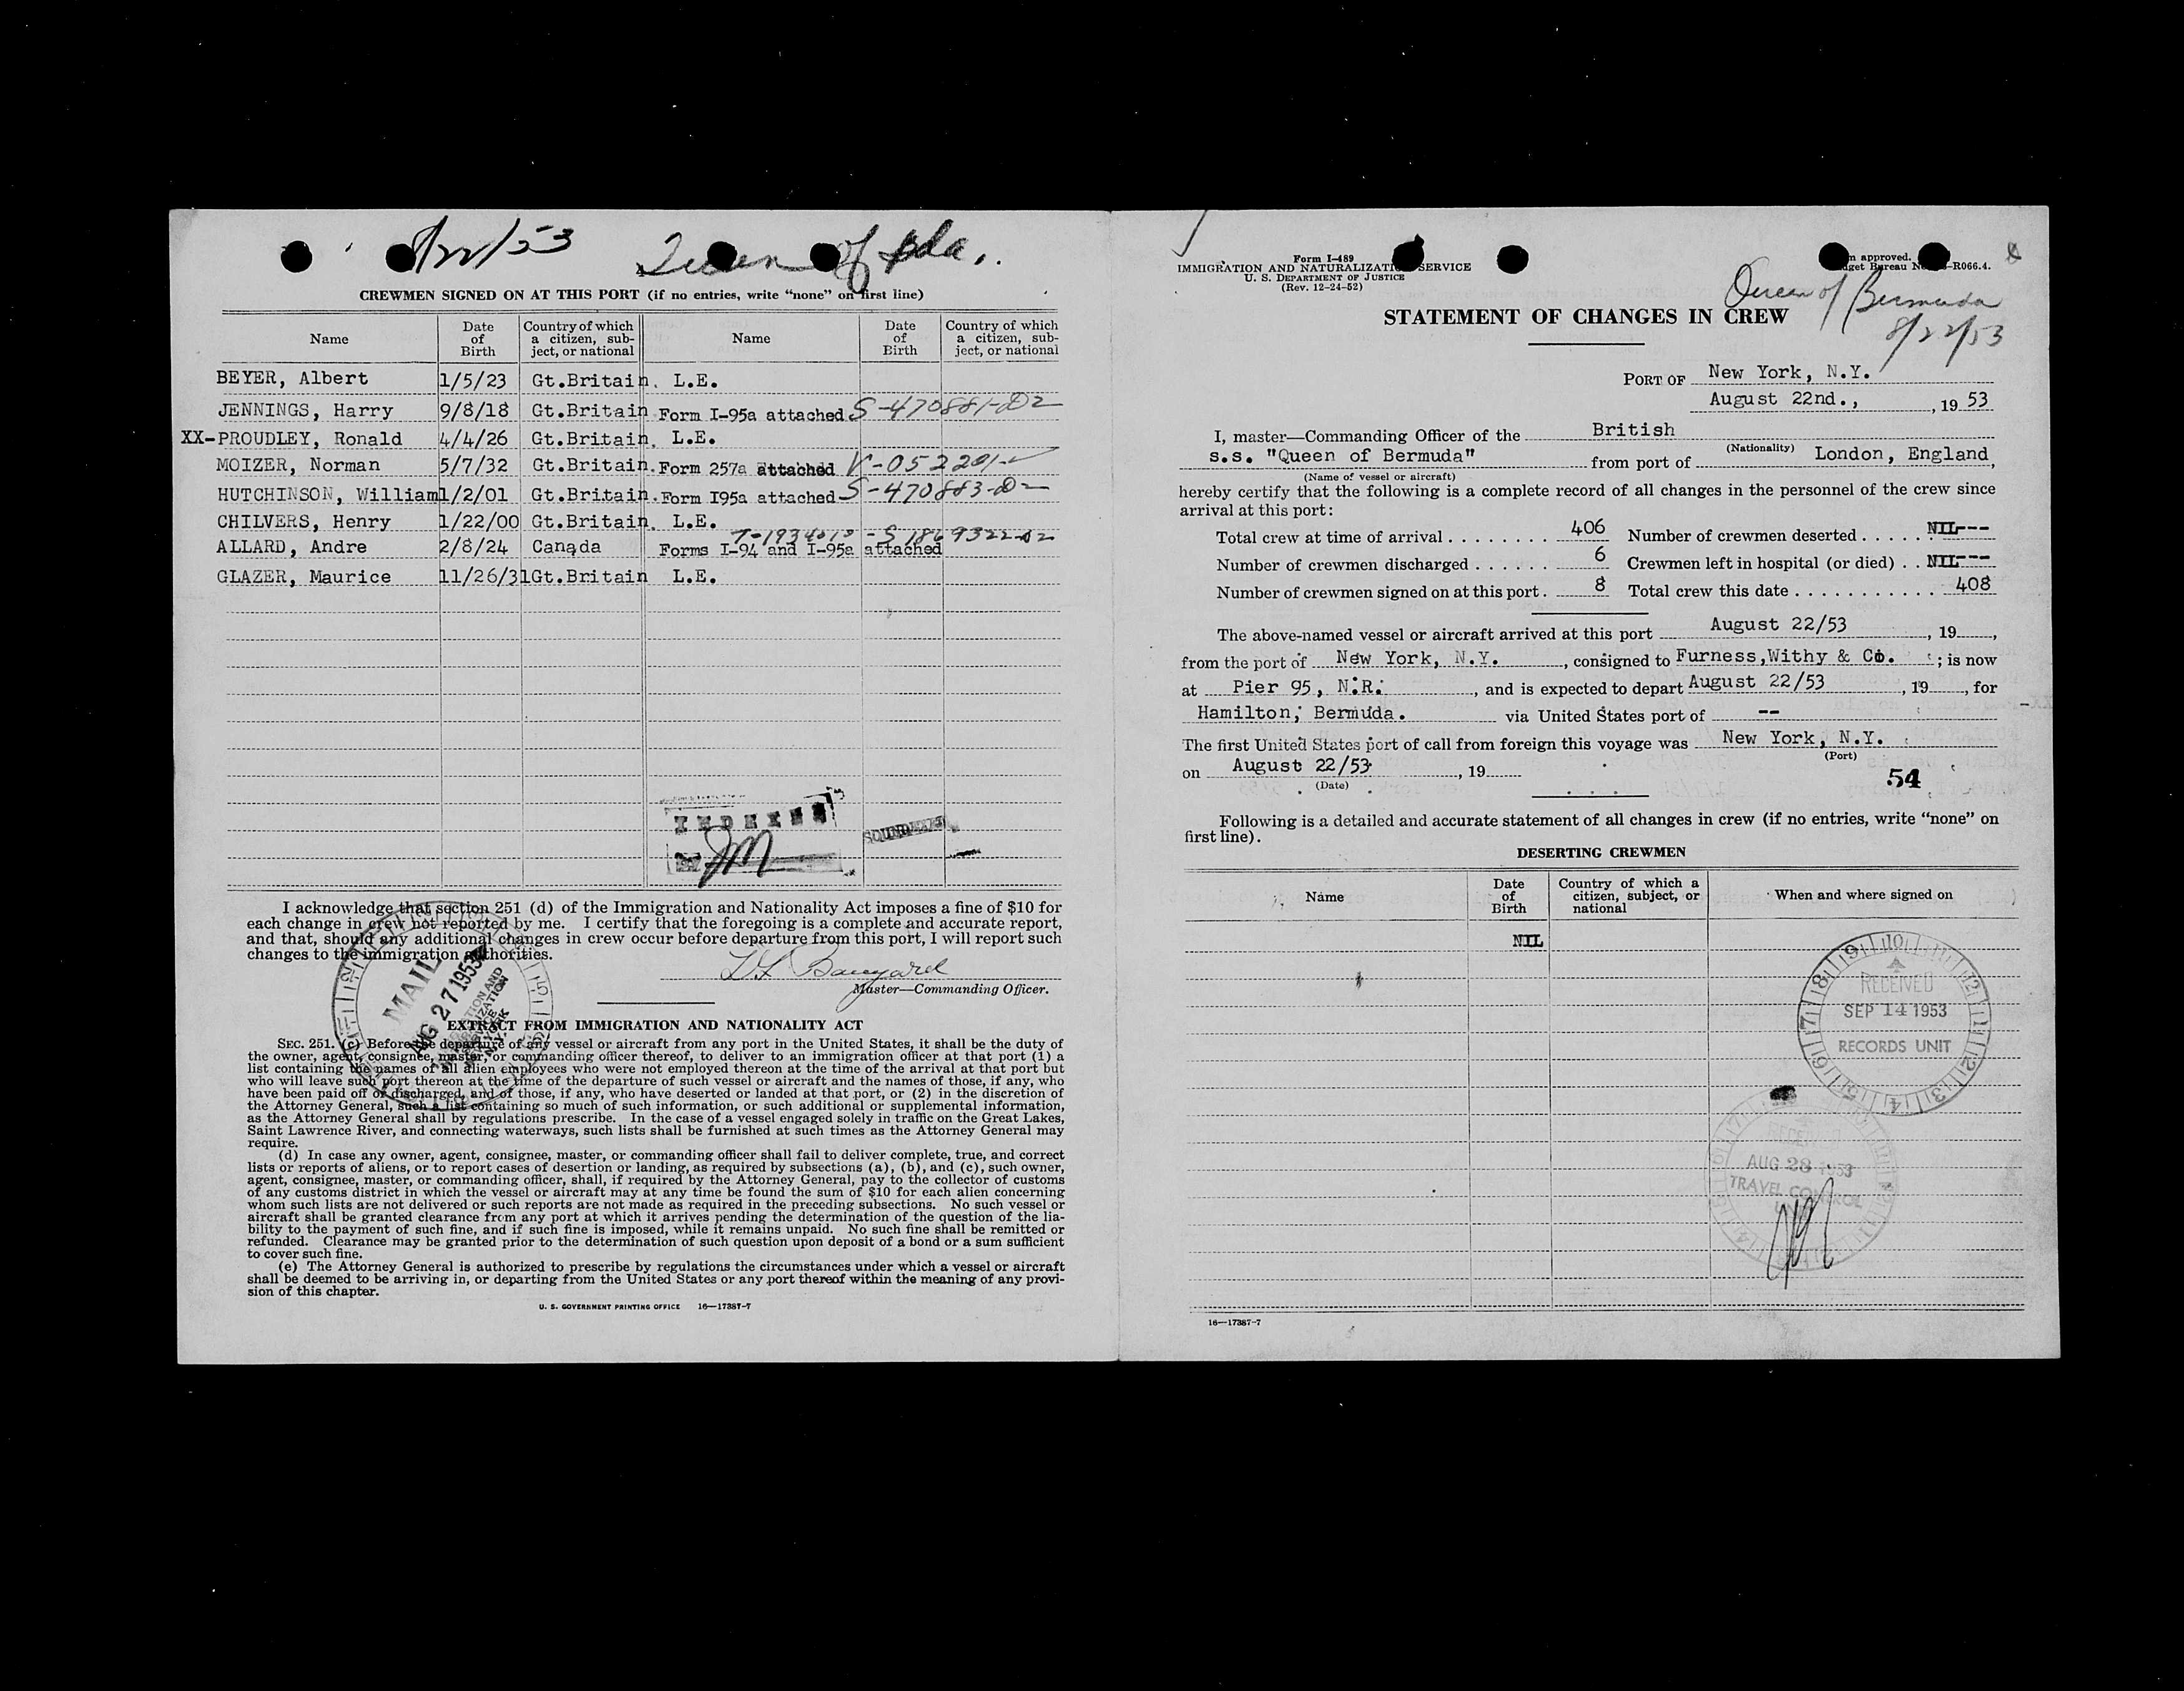 8/22/53 Queen of Bda.
CREWMEN SIGNED ON AT THIS PORT (if no entries, write “none” on first line)
Name Date of Birth Country of which a citizen, subject, or national Name Date of Birth Country of which a citizen, subject, or national
BEYER, Albert 1/5/23 Gt.Britain. L.E.
JENNINGS, Harry 9/8/18 Gt.Britain Form I-95a attached S-470881-D2
XX-PROUDLEY, Ronald 4/4/26 Gt.Britain. L.E.
MOIZER, Norman 5/7/32 Gt.Britain. Form 257a attached V-052201
HUTCHINSON, William 1/2/01 Gt.Britain. Form I95a attached S-470883-D2
CHILVERS, Henry 1/22/00 Gt.Britain. L.E.
ALLARD, Andre 2/8/24 Canada Forms I-94 and I-95a attached
GLAZER, Maurice 11/26/31 Gt.Britain L.E.
INDEXED
SOUNDEXED
I acknowledge that section 251 (d) of the Immigration and Nationality Act imposes a fine of $10 for
each change in crew not reported by me. I certify that the foregoing is a complete and accurate report,
and that, should any additional changes in crew occur before departure from this port, I will report such
changes to the immigration authorities.
Master—Commanding Officer.
MAIL
AUG 27 1953
EXTRACT FROM IMMIGRATION AND NATIONALITY ACT
SEC. 251. (c) Before the departure of any vessel or aircraft from any port in the United States, it shall be the duty of
the owner, agent, consignee, master, or commanding officer thereof, to deliver to an immigration officer at that port (1) a
list containing the names of all alien employees who were not employed thereon at the time of the arrival at that port but
who will leave such port thereon at the time of the departure of such vessel or aircraft and the names of those, if any, who
have been paid off or discharged, and of those, if any, who have deserted or landed at that port, or (2) in the discretion of
the Attorney General, such a list containing so much of such information, or such additional or supplemental information,
as the Attorney General shall by regulations prescribe. In the case of a vessel engaged solely in traffic on the Great Lakes,
Saint Lawrence River, and connecting waterways, such lists shall be furnished at such times as the Attorney General may
require.
(d) In case any owner, agent, consignee, master, or commanding officer shall fail to deliver complete, true, and correct
lists or reports of aliens, or to report cases of desertion or landing, as required by subsections (a), (b), and (c), such owner,
agent, consignee, master, or commanding officer, shall, if required by the Attorney General, pay to the collector of customs
of any customs district in which the vessel or aircraft may at any time be found the sum of $10 for each alien concerning
whom such lists are not delivered or such reports are not made as required in the preceding subsections. No such vessel or
aircraft shall be granted clearance from any port at which it arrives pending the determination of the question of the lia-
bility to the payment of such fine, and if such fine is imposed, while it remains unpaid. No such fine shall be remitted or
refunded. Clearance may be granted prior to the determination of such question upon deposit of a bond or a sum sufficient
to cover such fine.
(e) The Attorney General is authorized to prescribe by regulations the circumstances under which a vessel or aircraft
shall be deemed to be arriving in, or departing from the United States or any port thereof within the meaning of any provi-
sion of this chapter.
U. S. GOVERNMENT PRINTING OFFICE 16—17387-7
Form I-489
IMMIGRATION AND NATURALIZATION SERVICE
U. S. DEPARTMENT OF JUSTICE
(Rev. 12-24-52)
approved.
Bureau -R066.4.
Queen of Bermuda
8/22/53
STATEMENT OF CHANGES IN CREW
PORT OF New York, N.Y.
August 22nd., , 19 53
I, master—Commanding Officer of the British
(Nationality)
s.s. "Queen of Bermuda" from port of London, England,
(Name of vessel or aircraft)
hereby certify that the following is a complete record of all changes in the personnel of the crew since
arrival at this port:
Total crew at time of arrival . . . . . . . . 406 Number of crewmen deserted . . . . . . NIL---
Number of crewmen discharged . . . . . . 6 Crewmen left in hospital (or died) . . NIL---
Number of crewmen signed on at this port . 8 Total crew this date . . . . . . . . . . . 408
The above-named vessel or aircraft arrived at this port August 22/53 , 19 ,
from the port of New York, N.Y. , consigned to Furness,Withy & Co. ; is now
at Pier 95, N.R. , and is expected to depart August 22/53 , 19 , for
Hamilton, Bermuda. via United States port of --
The first United States port of call from foreign this voyage was New York, N.Y.
(Port)
on August 22/53 , 19
(Date)
54
Following is a detailed and accurate statement of all changes in crew (if no entries, write “none” on
first line).
DESERTING CREWMEN
Name Date of Birth Country of which a citizen, subject, or national When and where signed on
NIL
RECEIVED
SEP 14 1953
RECORDS UNIT
RECEIVED
AUG 28 1953
TRAVEL CONTROL
16—17387-7